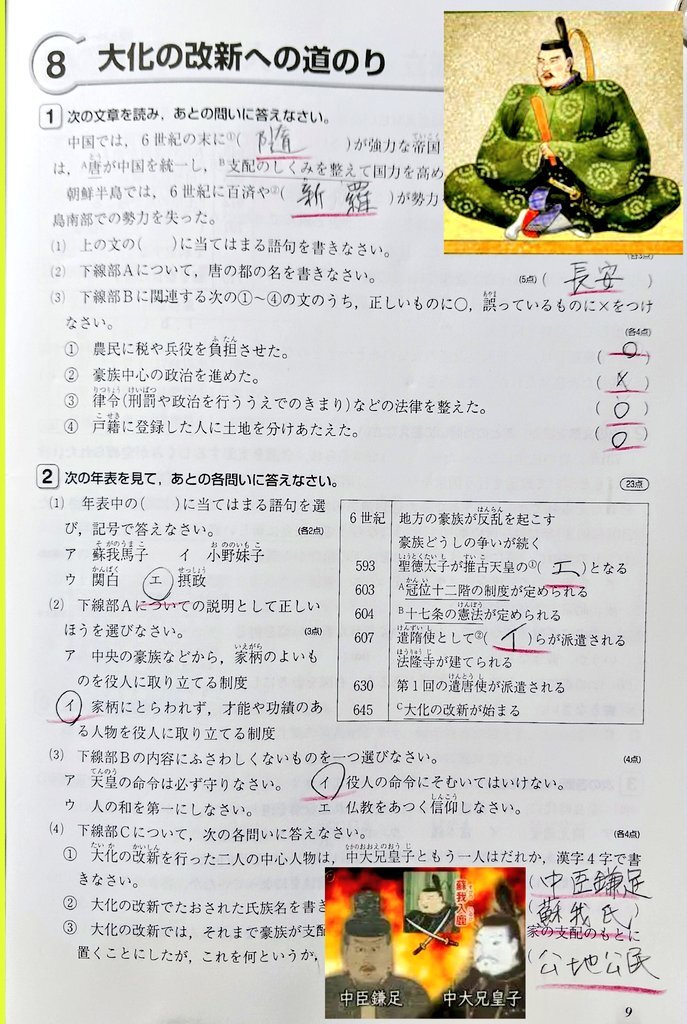 8 大化の改新への道のり
1 次の文章を読み，あとの問いに答えなさい。
中国では，6世紀の末に①( 隋 )が強力な帝国
は，A唐が中国を統一し，B支配のしくみを整えて国力を高め
朝鮮半島では，6世紀に百済や②( 新羅 )が勢力
島南部での勢力を失った。
(1) 上の文の( )に当てはまる語句を書きなさい。
(2) 下線部Aについて，唐の都の名を書きなさい。 (5点) ( 長安 )
(3) 下線部Bに関連する次の①～④の文のうち，正しいものに○，誤っているものに×をつけ
なさい。 (各4点)
① 農民に税や兵役を負担させた。 ( ○ )
② 豪族中心の政治を進めた。 ( × )
③ 律令(刑罰や政治を行ううえでのきまり)などの法律を整えた。 ( ○ )
④ 戸籍に登録した人に土地を分けあたえた。 ( ○ )
2 次の年表を見て，あとの各問いに答えなさい。 23点
(1) 年表中の( )に当てはまる語句を選
び，記号で答えなさい。 (各2点)
ア 蘇我馬子 イ 小野妹子
ウ 関白 エ 摂政
(2) 下線部Aについての説明として正しい
ほうを選びなさい。 (3点)
ア 中央の豪族などから，家柄のよいも
のを役人に取り立てる制度
イ 家柄にとらわれず，才能や功績のあ
る人物を役人に取り立てる制度
6世紀 地方の豪族が反乱を起こす
豪族どうしの争いが続く
593 聖徳太子が推古天皇の①( エ )となる
603 A冠位十二階の制度が定められる
604 B十七条の憲法が定められる
607 遣隋使として②( イ )らが派遣される
法隆寺が建てられる
630 第1回の遣唐使が派遣される
645 C大化の改新が始まる
(3) 下線部Bの内容にふさわしくないものを一つ選びなさい。 (4点)
ア 天皇の命令は必ず守りなさい。 イ 役人の命令にそむいてはいけない。
ウ 人の和を第一にしなさい。 エ 仏教をあつく信仰しなさい。
(4) 下線部Cについて，次の各問いに答えなさい。 (各4点)
① 大化の改新を行った二人の中心人物は，中大兄皇子ともう一人はだれか，漢字4字で書
きなさい。 ( 中臣鎌足 )
② 大化の改新でたおされた氏族名を書き ( 蘇我氏 )
③ 大化の改新では，それまで豪族が支配 家の支配のもとに
置くことにしたが，これを何というか， ( 公地公民 )
蘇我入鹿
中臣鎌足 中大兄皇子
9